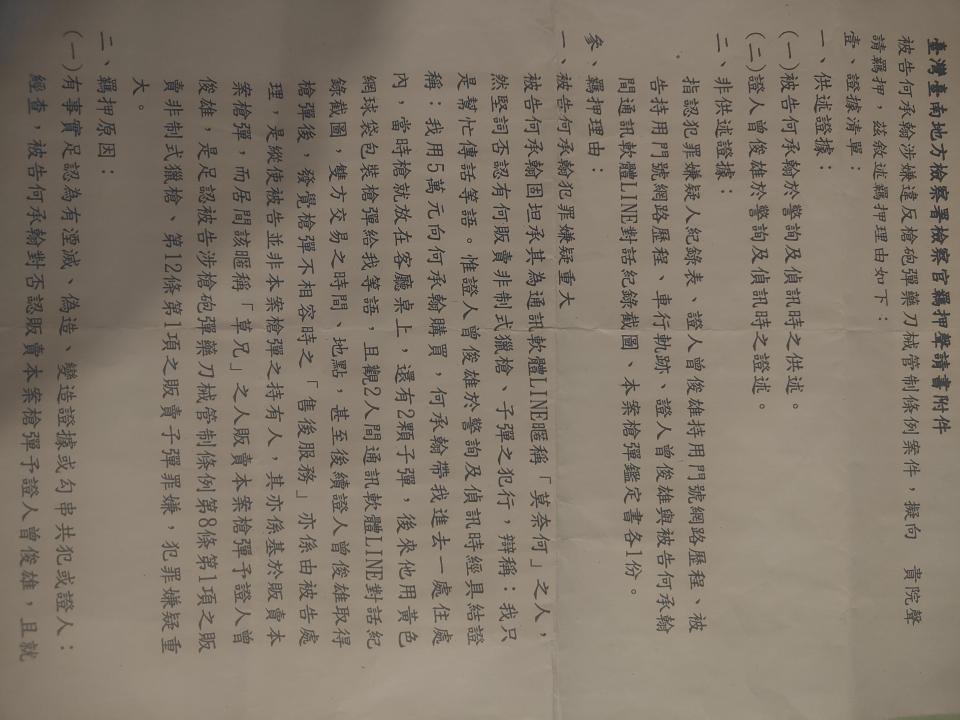 臺灣臺南地方檢察署檢察官羈押聲請書附件
被告何承翰涉嫌違反槍砲彈藥刀械管制條例案件，擬向　貴院聲
請羈押，茲敘述羈押理由如下：
壹、證據清單：
一、供述證據：
(一)被告何承翰於警詢及偵訊時之供述。
(二)證人曾俊雄於警詢及偵訊時之證述。
二、非供述證據：
指認犯罪嫌疑人紀錄表、證人曾俊雄持用門號網路歷程、被
告持用門號網路歷程、車行軌跡、證人曾俊雄與被告何承翰
間通訊軟體LINE對話紀錄截圖、本案槍彈鑑定書各1份。
參、羈押理由：
一、被告何承翰犯罪嫌疑重大
被告何承翰固坦承其為通訊軟體LINE暱稱「莫奈何」之人，
然堅詞否認有何販賣非制式獵槍、子彈之犯行，辯稱：我只
是幫忙傳話等語。惟證人曾俊雄於警詢及偵訊時經具結證
稱：我用5萬元向何承翰購買，何承翰帶我進去一處住處
內，當時槍就放在客廳桌上，還有2顆子彈，後來他用黃色
網球袋包裝槍彈給我等語，且觀2人間通訊軟體LINE對話紀
錄截圖，雙方交易之時間、地點，甚至後續證人曾俊雄取得
槍彈後，發覺槍彈不相容時之「售後服務」亦係由被告處
理，是縱使被告並非本案槍彈之持有人，其亦係基於販賣本
案槍彈，而居間該暱稱「草兄」之人販賣本案槍彈予證人曾
俊雄，是足認被告涉槍砲彈藥刀械管制條例第8條第1項之販
賣非制式獵槍、第12條第1項之販賣子彈罪嫌，犯罪嫌疑重
大。
二、羈押原因：
(一)有事實足認為有湮滅、偽造、變造證據或勾串共犯或證人：
經查，被告何承翰對否認販賣本案槍彈予證人曾俊雄，且就